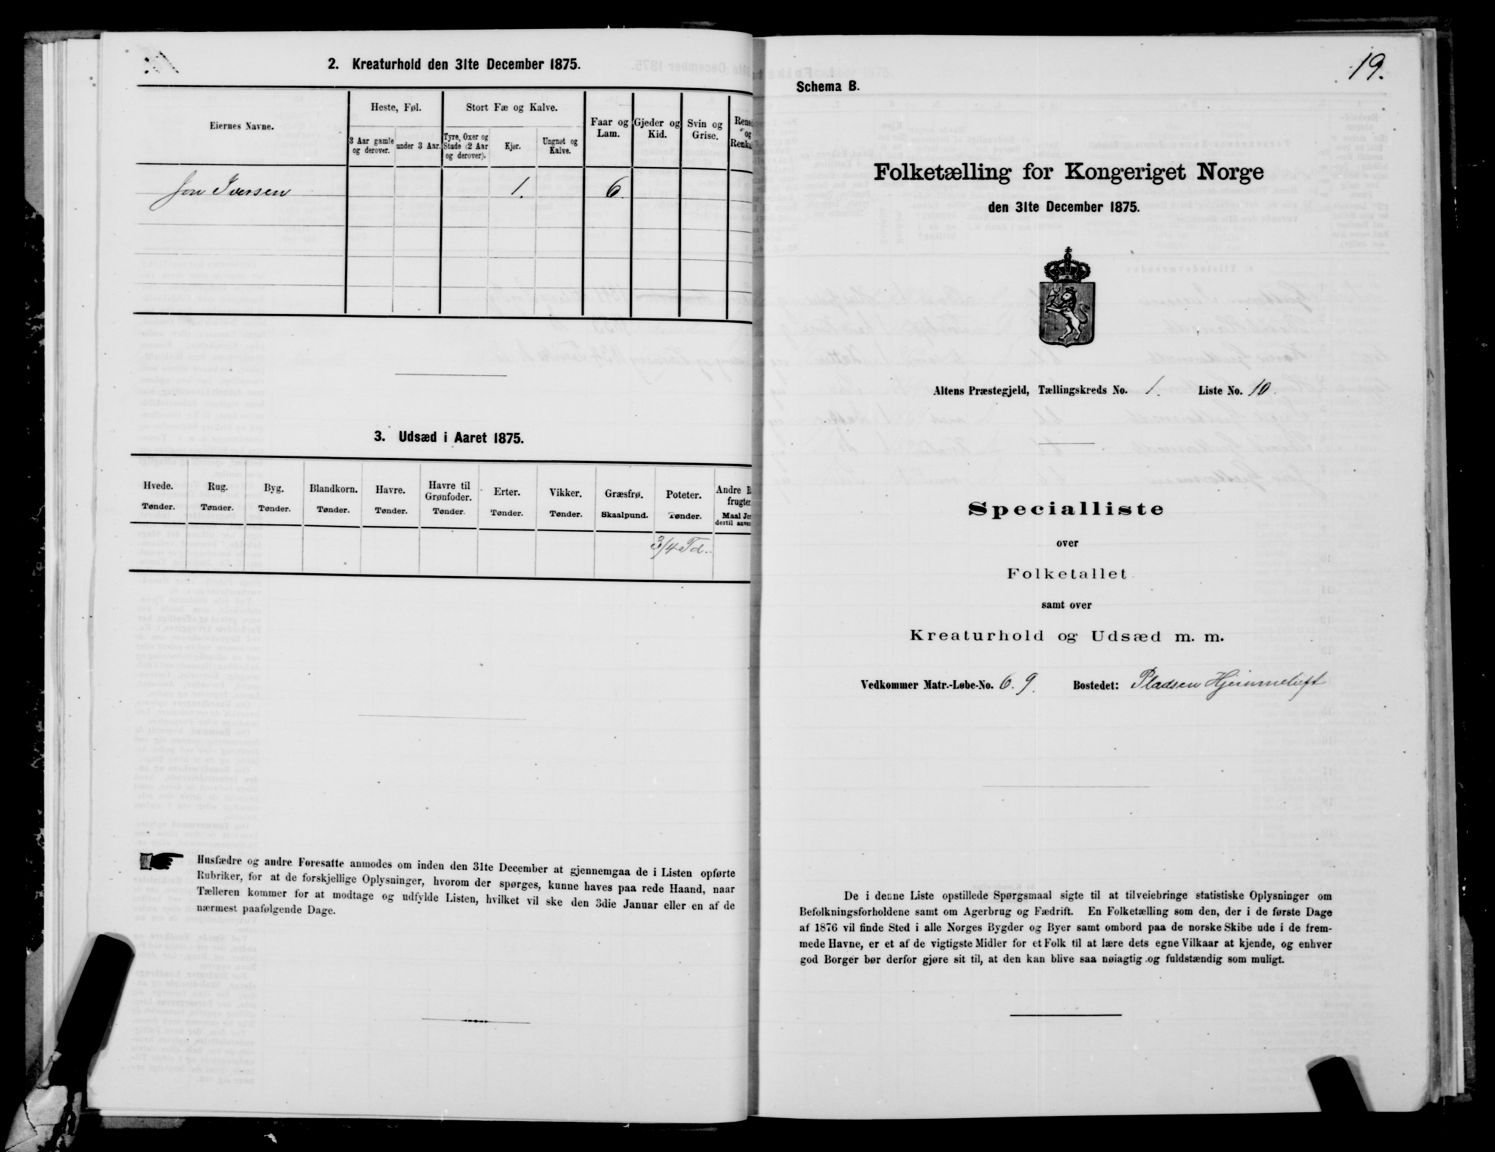 2. Kreaturhold den 31te December 1875.
Eiernes Navne.
Heste, Føl.
Stort Fæ og Kalve.
Faar og Lam.
Gjeder og Kid.
Svin og Grise.
Rens- og Renka
3 Aar gamle og derover.
under 3 Aar.
Tyre, Oxer og Stude (2 Aar og derover).
Kjør.
Ungnøt og Kalve.
Jon Iversen 1. 6.
3. Udsæd i Aaret 1875.
Hvede. Rug. Byg. Blandkorn. Havre. Havre til Grønfoder. Erter. Vikker. Græsfrø. Poteter. Andre
frugter
Tønder. Tønder. Tønder. Tønder. Tønder. Tønder. Tønder. Tønder. Skaalpund. Tønder. Maal
dertil
3/4 Td.
Husfædre og andre Foresatte anmodes om inden den 31te December at gjennemgaa de i Listen opførte
Rubriker, for at de forskjellige Oplysninger, hvorom der spørges, kunne haves paa rede Haand, naar
Tælleren kommer for at modtage og udfylde Listen, hvilket vil ske den 3die Januar eller en af de
nærmest paafølgende Dage.
19.
Schema B.
Folketælling for Kongeriget Norge
den 31te December 1875.
Altens Præstegjeld, Tællingskreds No. 1. Liste No. 10.
Specialliste
over
Folketallet
samt over
Kreaturhold og Udsæd m. m.
Vedkommer Matr.-Løbe-No. 6. 9. Bostedet: Pladsen Hjemmeluft
De i denne Liste opstillede Spørgsmaal sigte til at tilveiebringe statistiske Oplysninger om
Befolkningsforholdene samt om Agerbrug og Fædrift. En Folketælling som den, der i de første Dage
af 1876 vil finde Sted i alle Norges Bygder og Byer samt ombord paa de norske Skibe ude i de frem-
mede Havne, er et af de vigtigste Midler for et Folk til at lære dets egne Vilkaar at kjende, og enhver
god Borger bør derfor gjøre sit til, at den kan blive saa nøiagtig og fuldstændig som muligt.